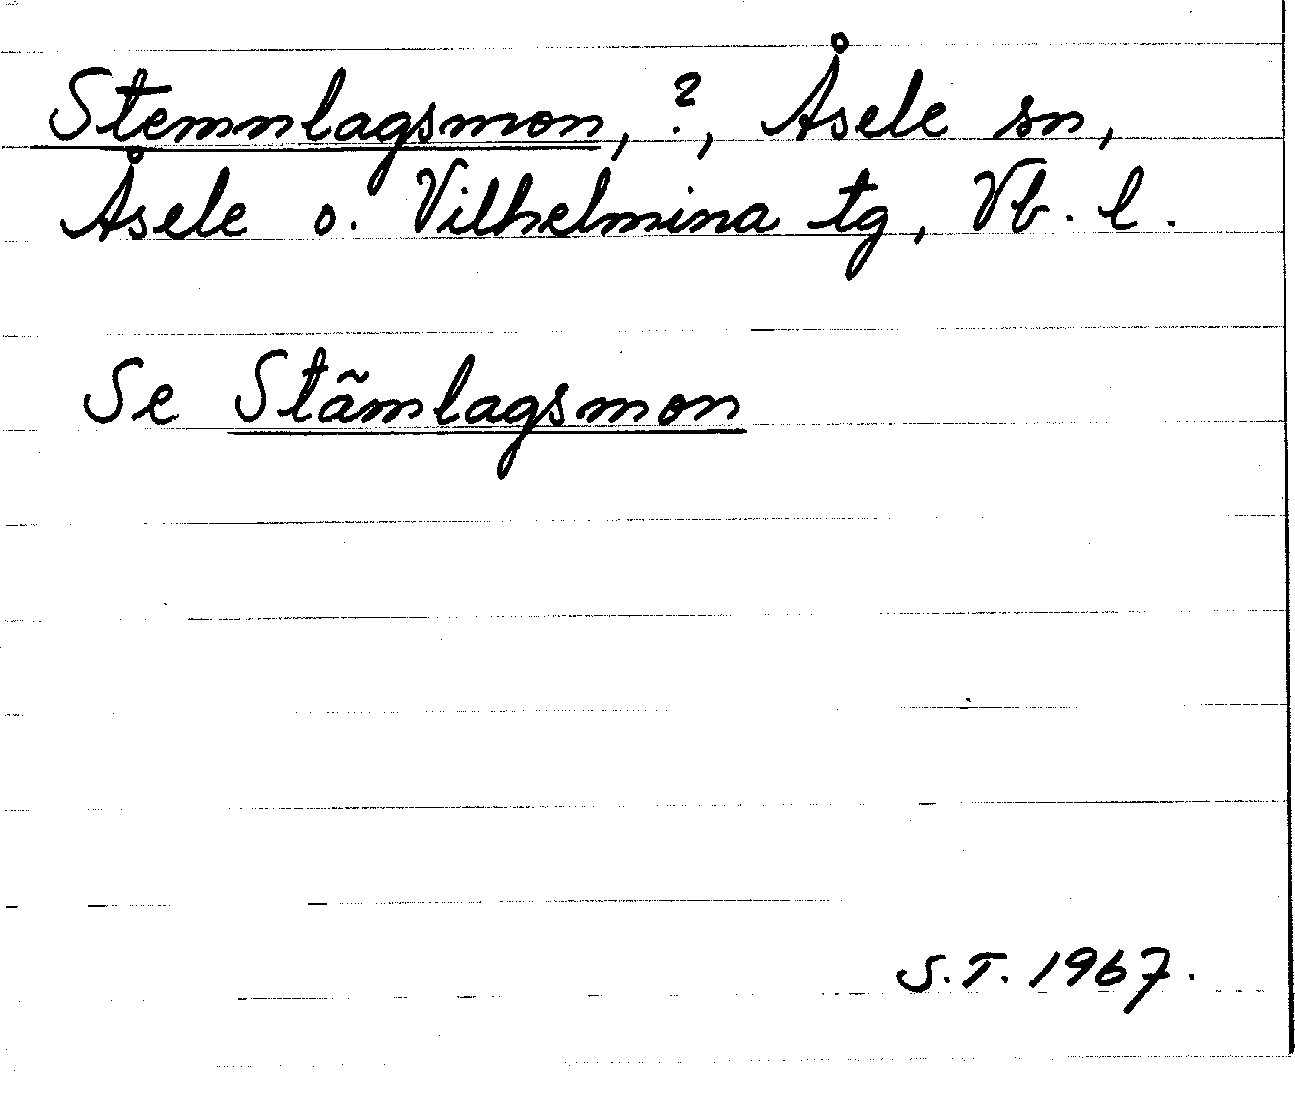 Stemnlagsmon, ?, Åsele sn,
Åsele o. Vilhelmina tg, Vb. l.
Se Stämlagsmon
S.T. 1967.